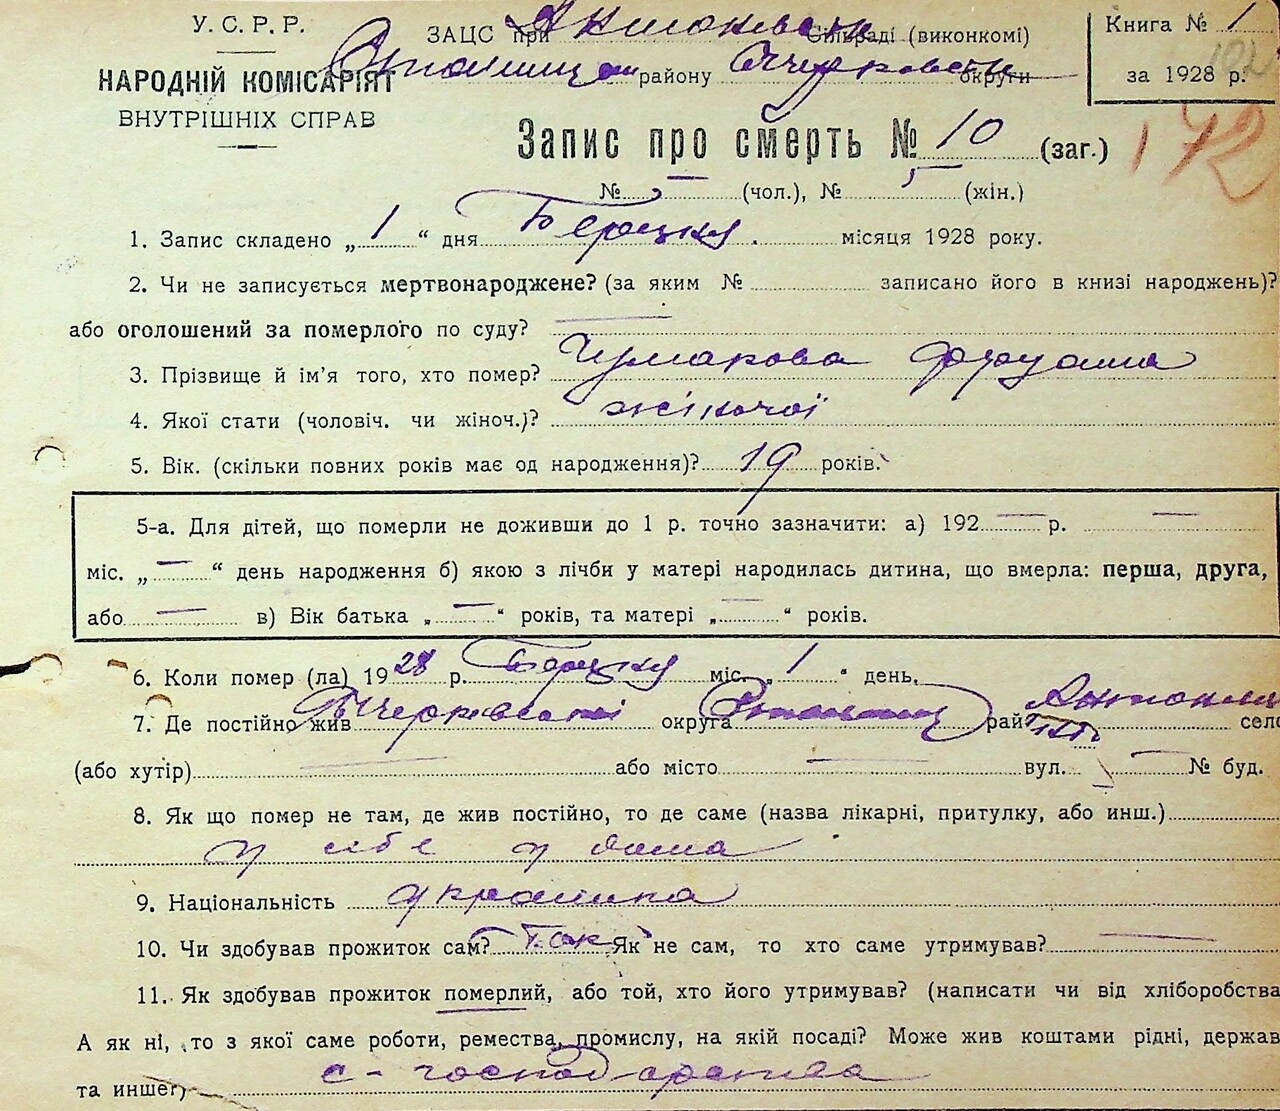 У. С. Р. Р.
НАРОДНІЙ КОМІСАРІЯТ
ВНУТРІШНІХ СПРАВ
ЗАЦС при Сільраді (виконкомі)
району округи
Книга № 1
за 1928 р.
102
172
Запис про смерть № 10 (заг.)
№ — (чол.), № 5 (жін.)
1. Запис складено „ 1 “ дня Березня місяця 1928 року.
2. Чи не записується мертвонароджене? (за яким № записано його в книзі народжень)?
або оголошений за померлого по суду? —
3. Прізвище й ім’я того, хто помер? Чумакова
4. Якої стати (чоловіч. чи жіноч.)? жіночої
5. Вік. (скільки повних років має од народження)? 19 років.
5-а. Для дітей, що померли не доживши до 1 р. точно зазначити: а) 192 — р. —
міс. „ — “ день народження б) якою з лічби у матері народилась дитина, що вмерла: перша, друга,
або — в) Вік батька „ — “ років, та матері „ — “ років.
6. Коли помер (ла) 1928 р. Березня міс. „ 1 “ день.
7. Де постійно жив округа рай село
(або хутір) — або місто — вул. — № буд.
8. Як що помер не там, де жив постійно, то де саме (назва лікарні, притулку, або инш.)
у себе у дома
9. Національність українка
10. Чи здобував прожиток сам? Так Як не сам, то хто саме утримував? —
11. Як здобував прожиток померлий, або той, хто його утримував? (написати чи від хліборобства
А як ні, то з якої саме роботи, ремества, промислу, на якій посаді? Може жив коштами рідні, держав
та инше) с-господарства